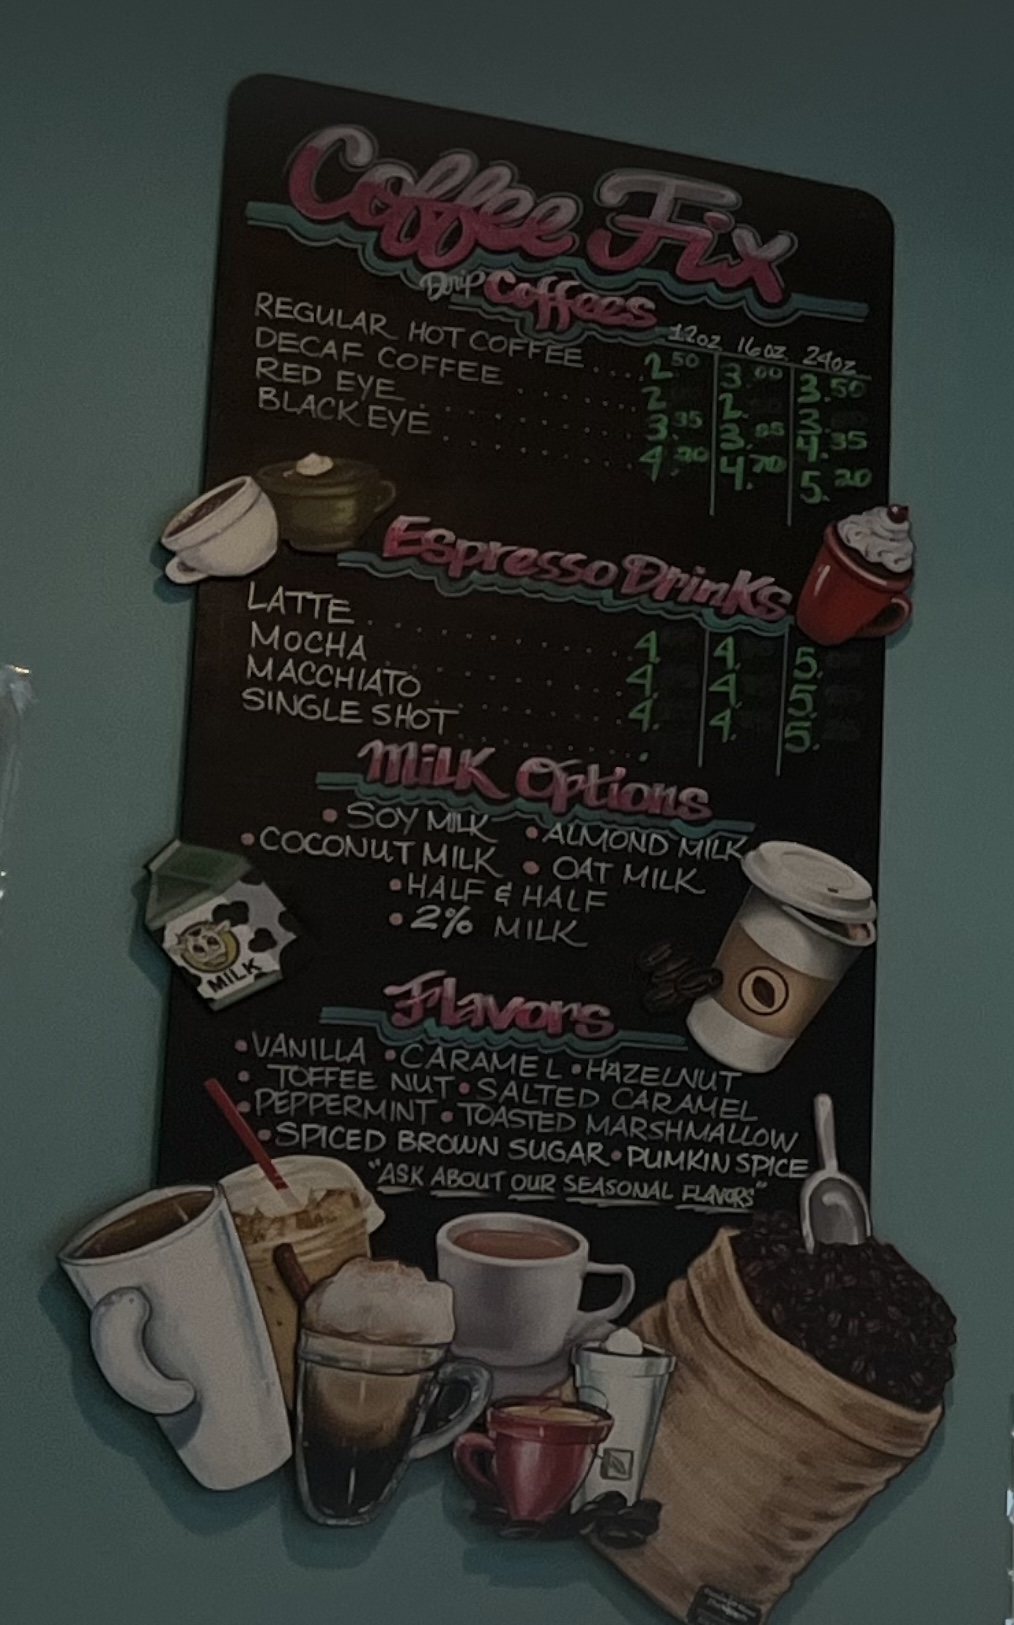 Coffee Fix
Drip Coffees
12oz 16oz 24oz
REGULAR HOT COFFEE .... 2.50 3.00 3.50
DECAF COFFEE ....... 2. 2. 3.
RED EYE ......... 3.95 3. 4.35
BLACK EYE ......... 4.20 4.70 5.20
Espresso Drinks
LATTE ......... 4. 4. 5.
MOCHA ......... 4. 4. 5.
MACCHIATO ....... 4. 4. 5.
SINGLE SHOT .......
Milk Options
• SOY MILK • ALMOND MILK
• COCONUT MILK • OAT MILK
• HALF & HALF
• 2% MILK
MILK
Flavors
• VANILLA • CARAMEL • HAZELNUT
• TOFFEE NUT • SALTED CARAMEL
• PEPPERMINT • TOASTED MARSHMALLOW
• SPICED BROWN SUGAR • PUMKIN SPICE
"ASK ABOUT OUR SEASONAL FLAVORS"